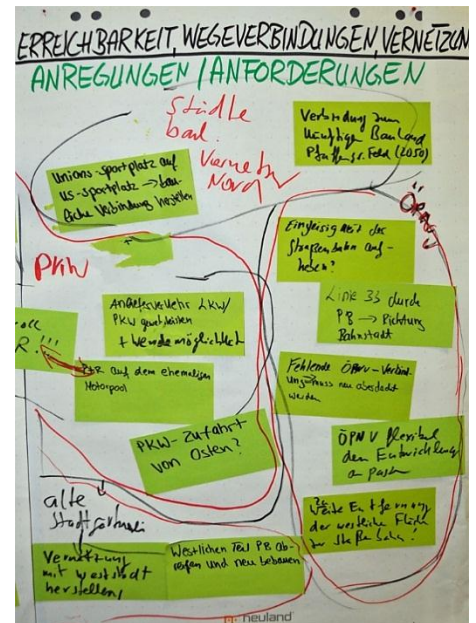 ERREICHBARKEIT, WEGEVERBINDUNGEN, VERNETZUN
ANREGUNGEN / ANFORDERUNGEN
Städte
bau.
Viernetz
Nord
Verbindung zum
künftigen Bauland
(2050)
Unions-sportplatz auf
US-Sportplatz → bau-
liche Verbindung herstellen
PKW
ÖPNV
Eingleisigkeit der
Straßenbahn auf-
heben?
Linie 33 durch
PB → Richtung
Bahnstadt
Anlieferverkehr LKW/
PKW gewährleisten
+ Wendemöglichkeit
P+R auf dem ehemaligen
Motorpool
Fehlende ÖPNV-Verbind-
ung muss neu
werden
PKW-Zufahrt
von Osten?
ÖPNV flexibel
den Entwicklung
anpassen
alte
Stadtgärtnerei
Weite Entfernung
der westlichen Fläche
zur Straßenbahn!
Vernetzung
mit Weststadt
herstellen!
Westlichen Teil PB ab-
reißen und neu bebauen
neuland